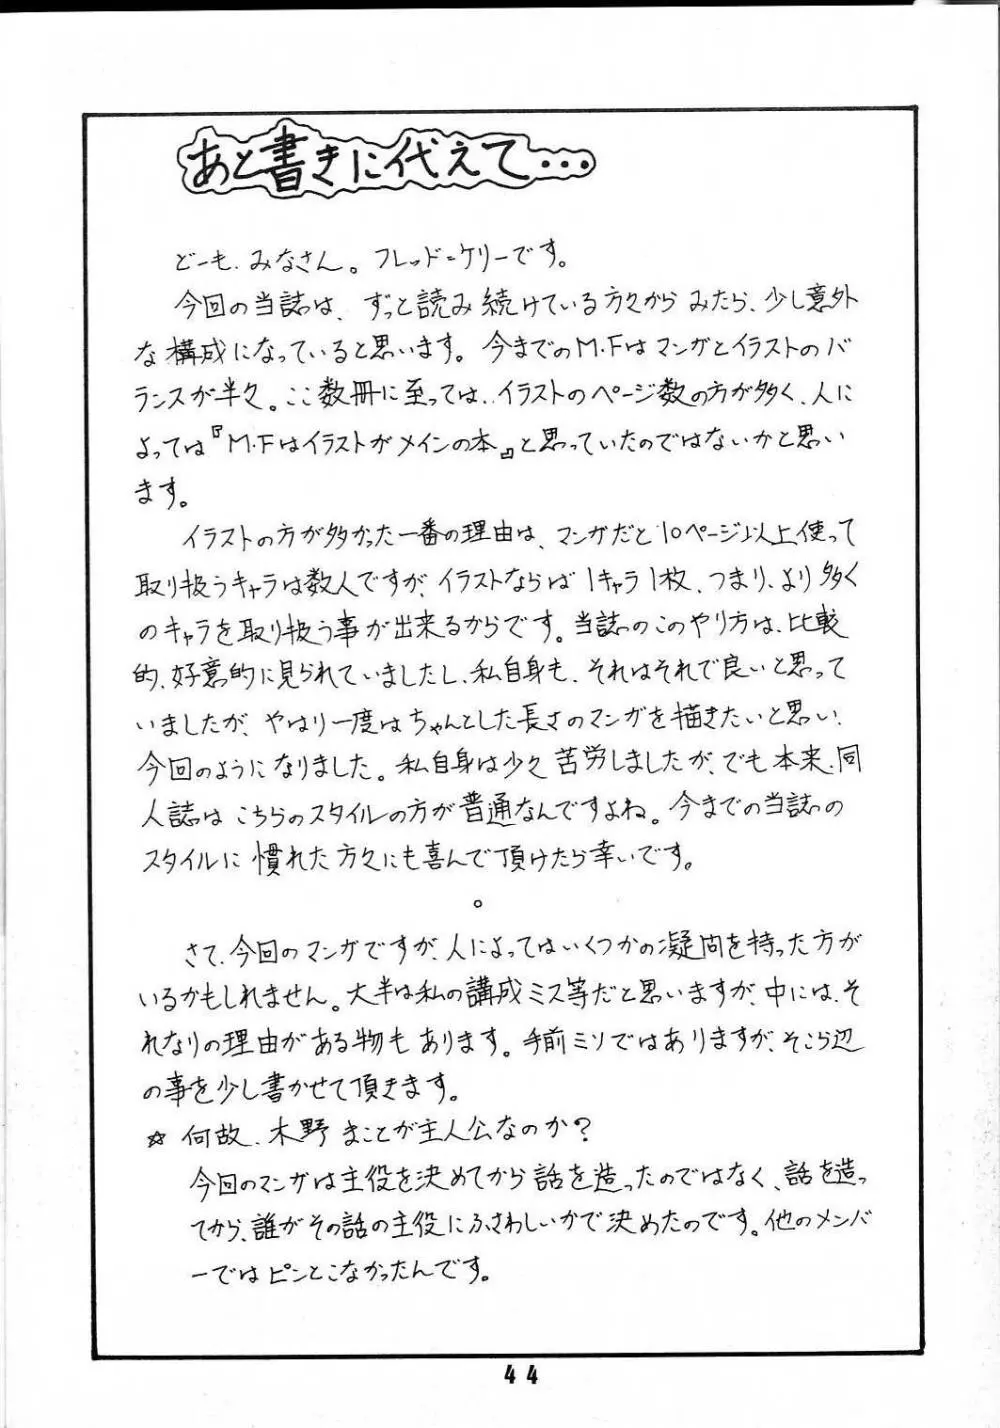 あと書きに代えて…
どーも、みなさん。フレッド=ケリーです。
今回の当誌は、ずっと読み続けている方々からみたら、少し意外
な構成になっていると思います。今までのM.Fはマンガとイラストのバ
ランスが半々。ここ数冊に至っては、イラストのページ数の方が多く、人に
よっては『M.Fはイラストがメインの本』と思っていたのではないかと思い
ます。
イラストの方が多かった一番の理由は、マンガだと10ページ以上使って
取り扱うキャラは数人ですが、イラストならば1キャラ1枚、つまり、より多く
のキャラを取り扱う事が出来るからです。当誌のこのやり方は、比較
的、好意的に見られていましたし、私自身も、それはそれで良いと思って
いましたが、やはり一度はちゃんとした長さのマンガを描きたいと思い、
今回のようになりました。私自身は少々苦労しましたが、でも本来、同
人誌はこちらのスタイルの方が普通なんですよね。今までの当誌の
スタイルに慣れた方々にも喜んで頂けたら幸いです。
。
さて、今回のマンガですが、人によってはいくつかの疑問を持った方が
いるかもしれません。大半は私の構成ミス等だと思いますが、中には、そ
れなりの理由がある物もあります。手前ミソではありますが、そこら辺
の事を少し書かせて頂きます。
☆ 何故、木野まことが主人公なのか？
今回のマンガは主役を決めてから話を造ったのではなく、話を造っ
てから、誰がその話の主役にふさわしいかで決めたのです。他のメンバ
ーではピンとこなかったんです。
44